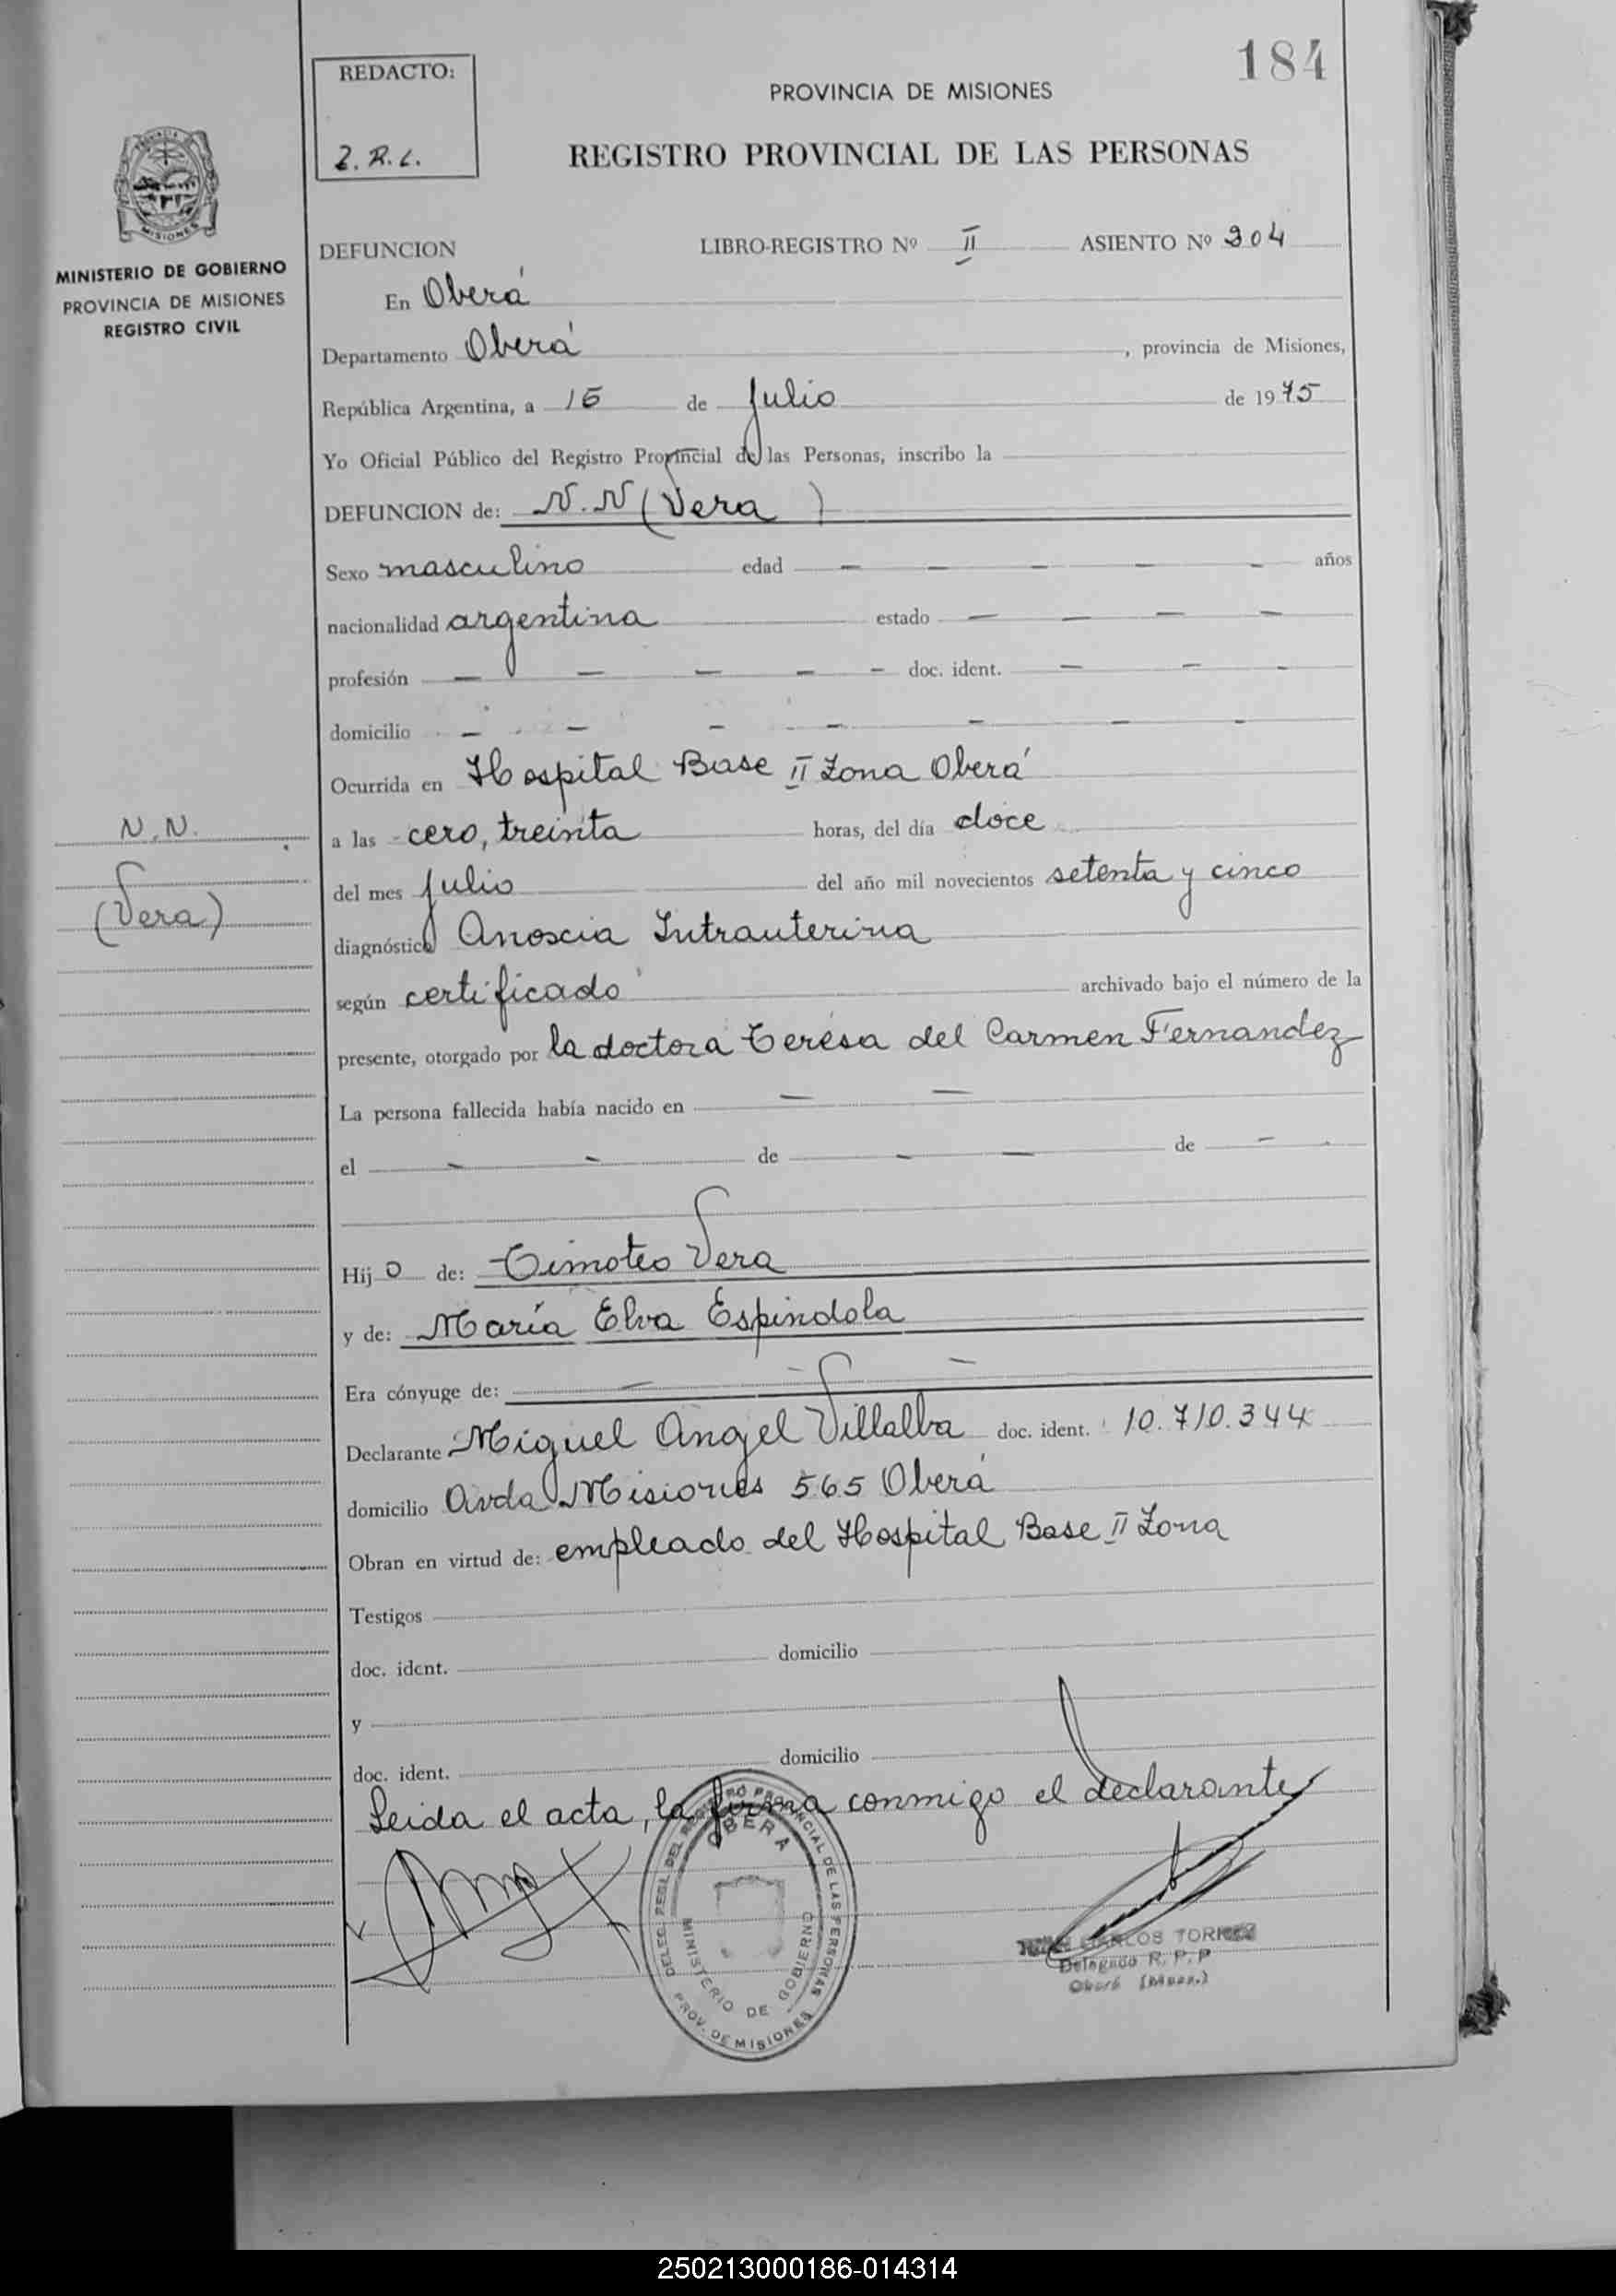 184
REDACTO:
PROVINCIA DE MISIONES
Z. R. L.
REGISTRO PROVINCIAL DE LAS PERSONAS
MISIONES
MINISTERIO DE GOBIERNO
PROVINCIA DE MISIONES
REGISTRO CIVIL
DEFUNCION LIBRO-REGISTRO Nº II ASIENTO Nº 304
En Oberá
Departamento Oberá, provincia de Misiones,
República Argentina, a 15 de Julio de 1975
Yo Oficial Público del Registro Provincial de las Personas, inscribo la
DEFUNCION de: N.N (Vera)
Sexo masculino edad — — — — — años
nacionalidad argentina estado — — — —
profesión — — — — — doc. ident. — — —
domicilio — — — — — — —
Ocurrida en Hospital Base II Zona Oberá
N.N.
a las cero, treinta horas, del día doce
del mes Julio del año mil novecientos setenta y cinco
(Vera)
diagnóstico Anoscia Intrauterina
según certificado archivado bajo el número de la
presente, otorgado por la doctora Teresa del Carmen Fernandez
La persona fallecida había nacido en — —
el — — de — — de —
Hijo de: Timoteo Vera
y de: María Elva Espindola
Era cónyuge de: — — —
Declarante Miguel Angel Villalba doc. ident. 10.710.344
domicilio Avda Misiones 565 Oberá
Obran en virtud de: empleado del Hospital Base II Zona
Testigos
doc. ident. domicilio
y
doc. ident. domicilio
Leida el acta, la firma conmigo el declarante
DELEG. REGL. DEL REGISTRO PROVINCIAL DE LAS PERSONAS
OBERA
MINISTERIO DE GOBIERNO
PROV. DE MISIONES
CARLOS TORREZ
Delegado R. P. P
Oberá (Mnes.)
250213000186-014314